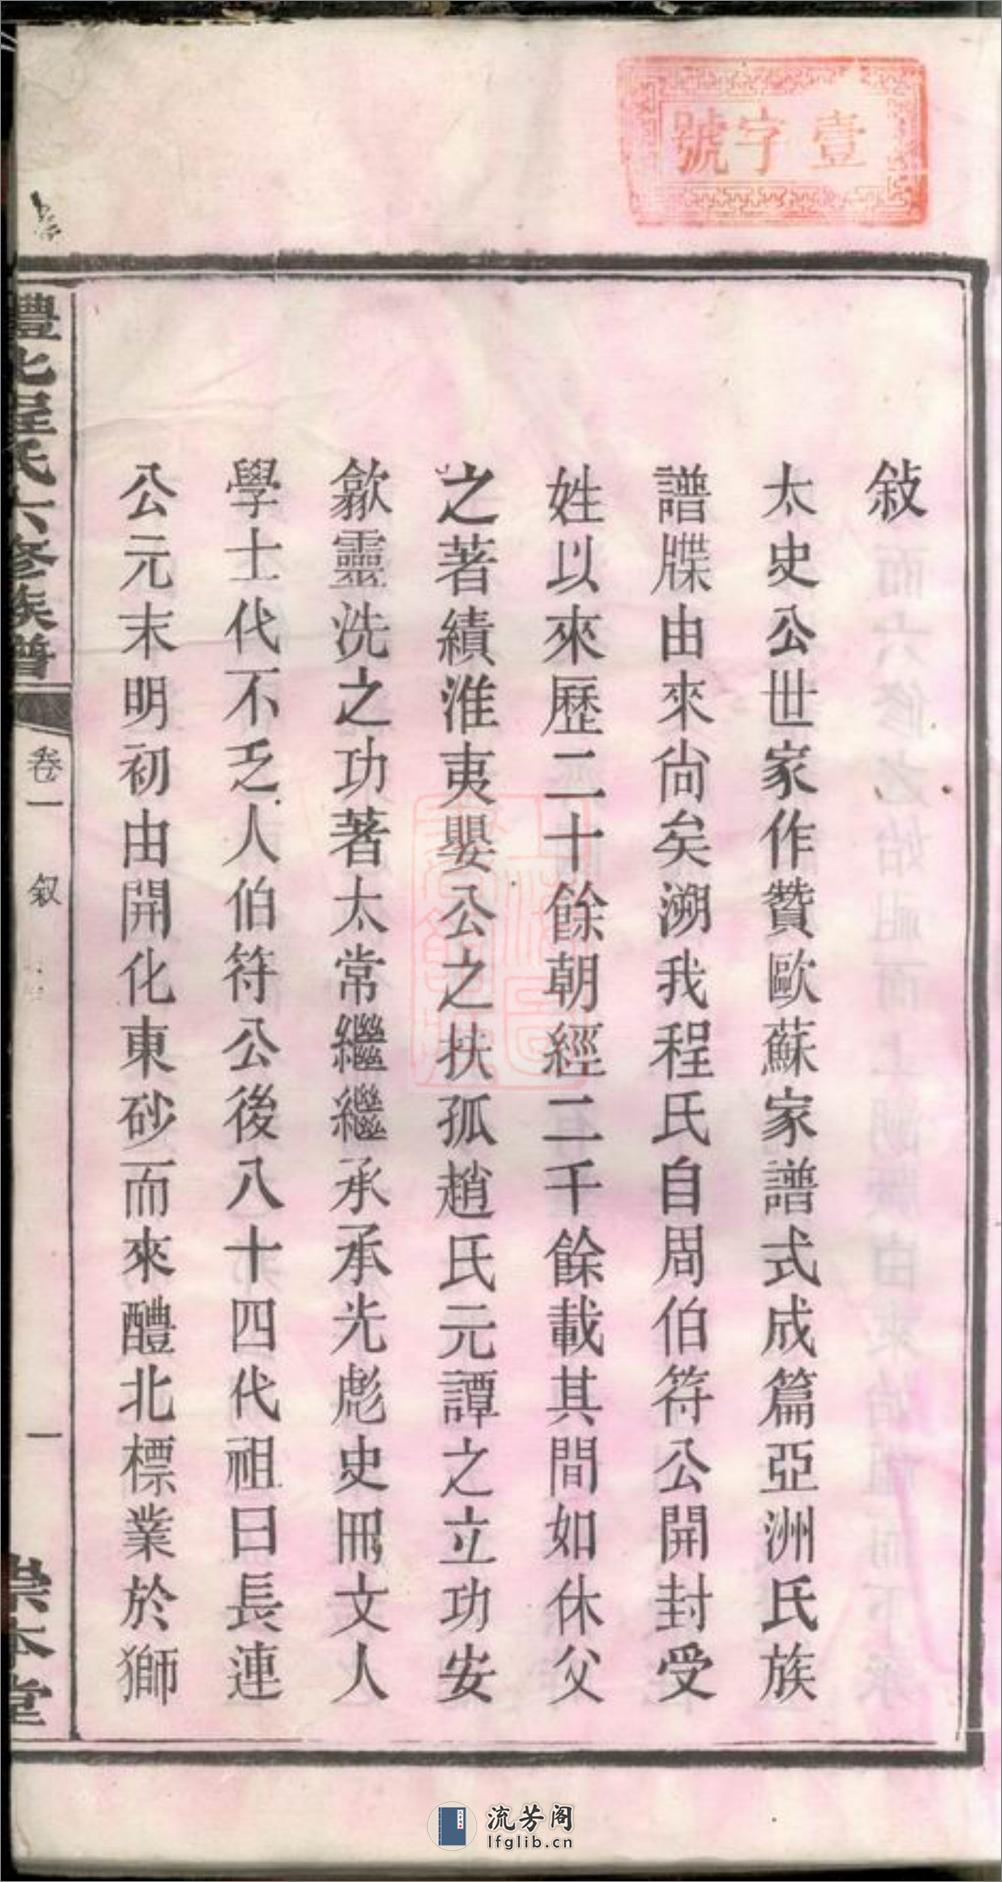 壹字號
敍
太史公世家作贊歐蘇家譜式成篇亞洲氏族
譜牒由來尙矣溯我程氏自周伯符公開封受
姓以來歷二十餘朝經二千餘載其間如休父
之著績淮夷嬰公之扶孤趙氏元譚之立功安
歙靈洗之功著太常繼繼承承光彪史冊文人
學士代不乏人伯符公後八十四代祖曰長連
公元末明初由開化東砂而來醴北標業於獅
醴北程氏六修族譜
卷一
敘
一
崇本堂
流芳阁
lfglib.cn